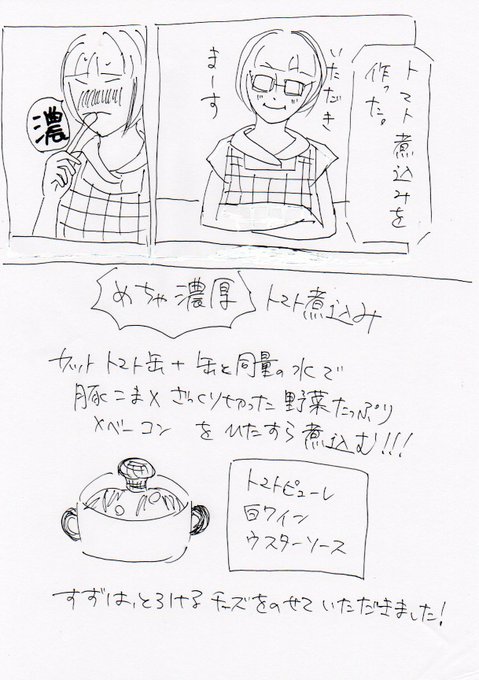 トマト煮込みを
作った。
いただき
まーす
濃
めちゃ濃厚 トマト煮込み
カットトマト缶+缶と同量の水で
豚こま×ざっくり切った野菜たっぷり
×ベーコン をひたすら煮込む!!!
トマトピューレ
白ワイン
ウスターソース
すずは、とろけるチーズをのせていただきました!